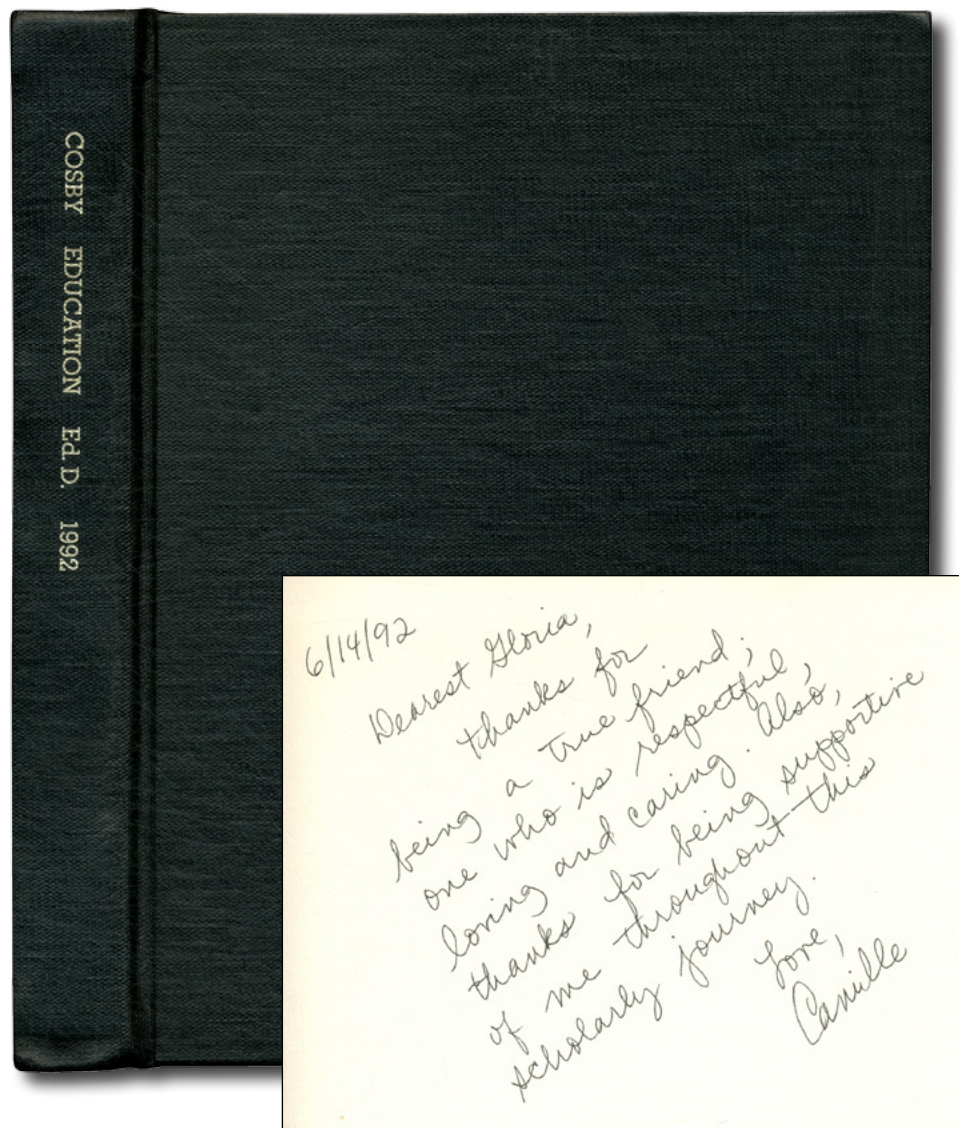 COSBY EDUCATION Ed. D. 1992
6/14/92
Dearest Gloria,
thanks for
being a true friend;
one who is respectful,
loving and caring. Also,
thanks for being supportive
of me throughout this
scholarly journey.
Love,
Camille